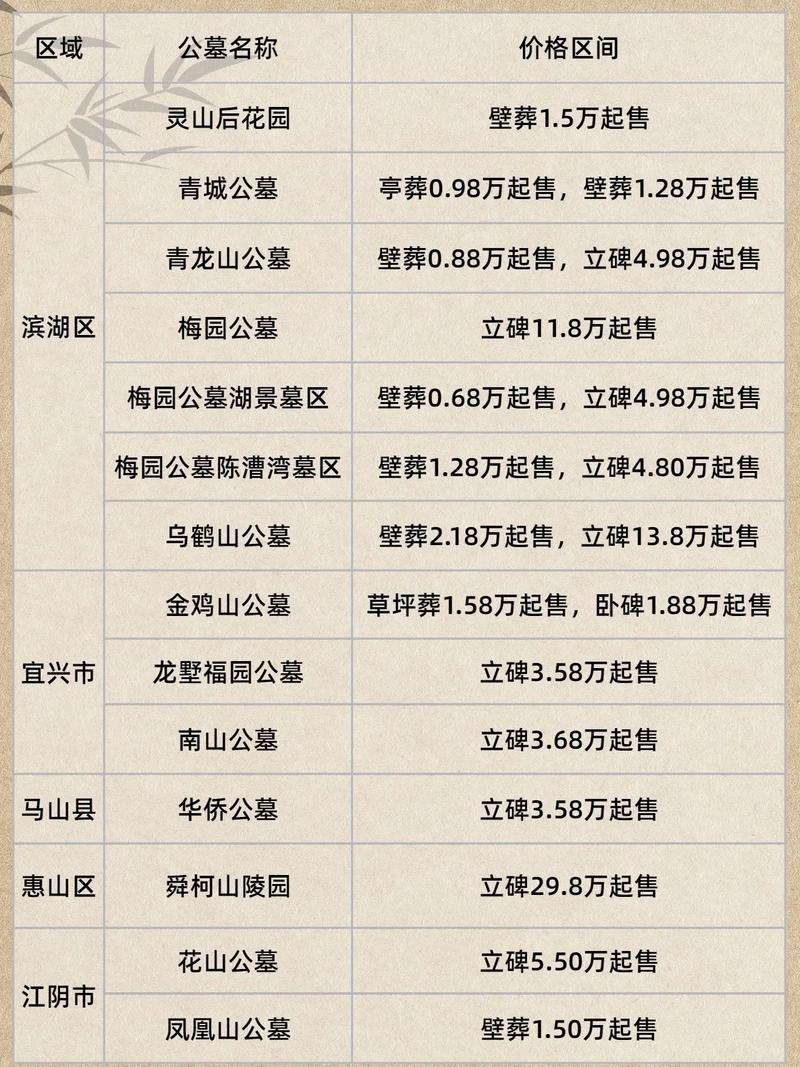 区域 公墓名称 价格区间
滨湖区
灵山后花园 壁葬1.5万起售
青城公墓 亭葬0.98万起售，壁葬1.28万起售
青龙山公墓 壁葬0.88万起售，立碑4.98万起售
梅园公墓 立碑11.8万起售
梅园公墓湖景墓区 壁葬0.68万起售，立碑4.98万起售
梅园公墓陈漕湾墓区 壁葬1.28万起售，立碑4.80万起售
乌鹤山公墓 壁葬2.18万起售，立碑13.8万起售
宜兴市
金鸡山公墓 草坪葬1.58万起售，卧碑1.88万起售
龙墅福园公墓 立碑3.58万起售
南山公墓 立碑3.68万起售
马山县 华侨公墓 立碑3.58万起售
惠山区 舜柯山陵园 立碑29.8万起售
江阴市
花山公墓 立碑5.50万起售
凤凰山公墓 壁葬1.50万起售